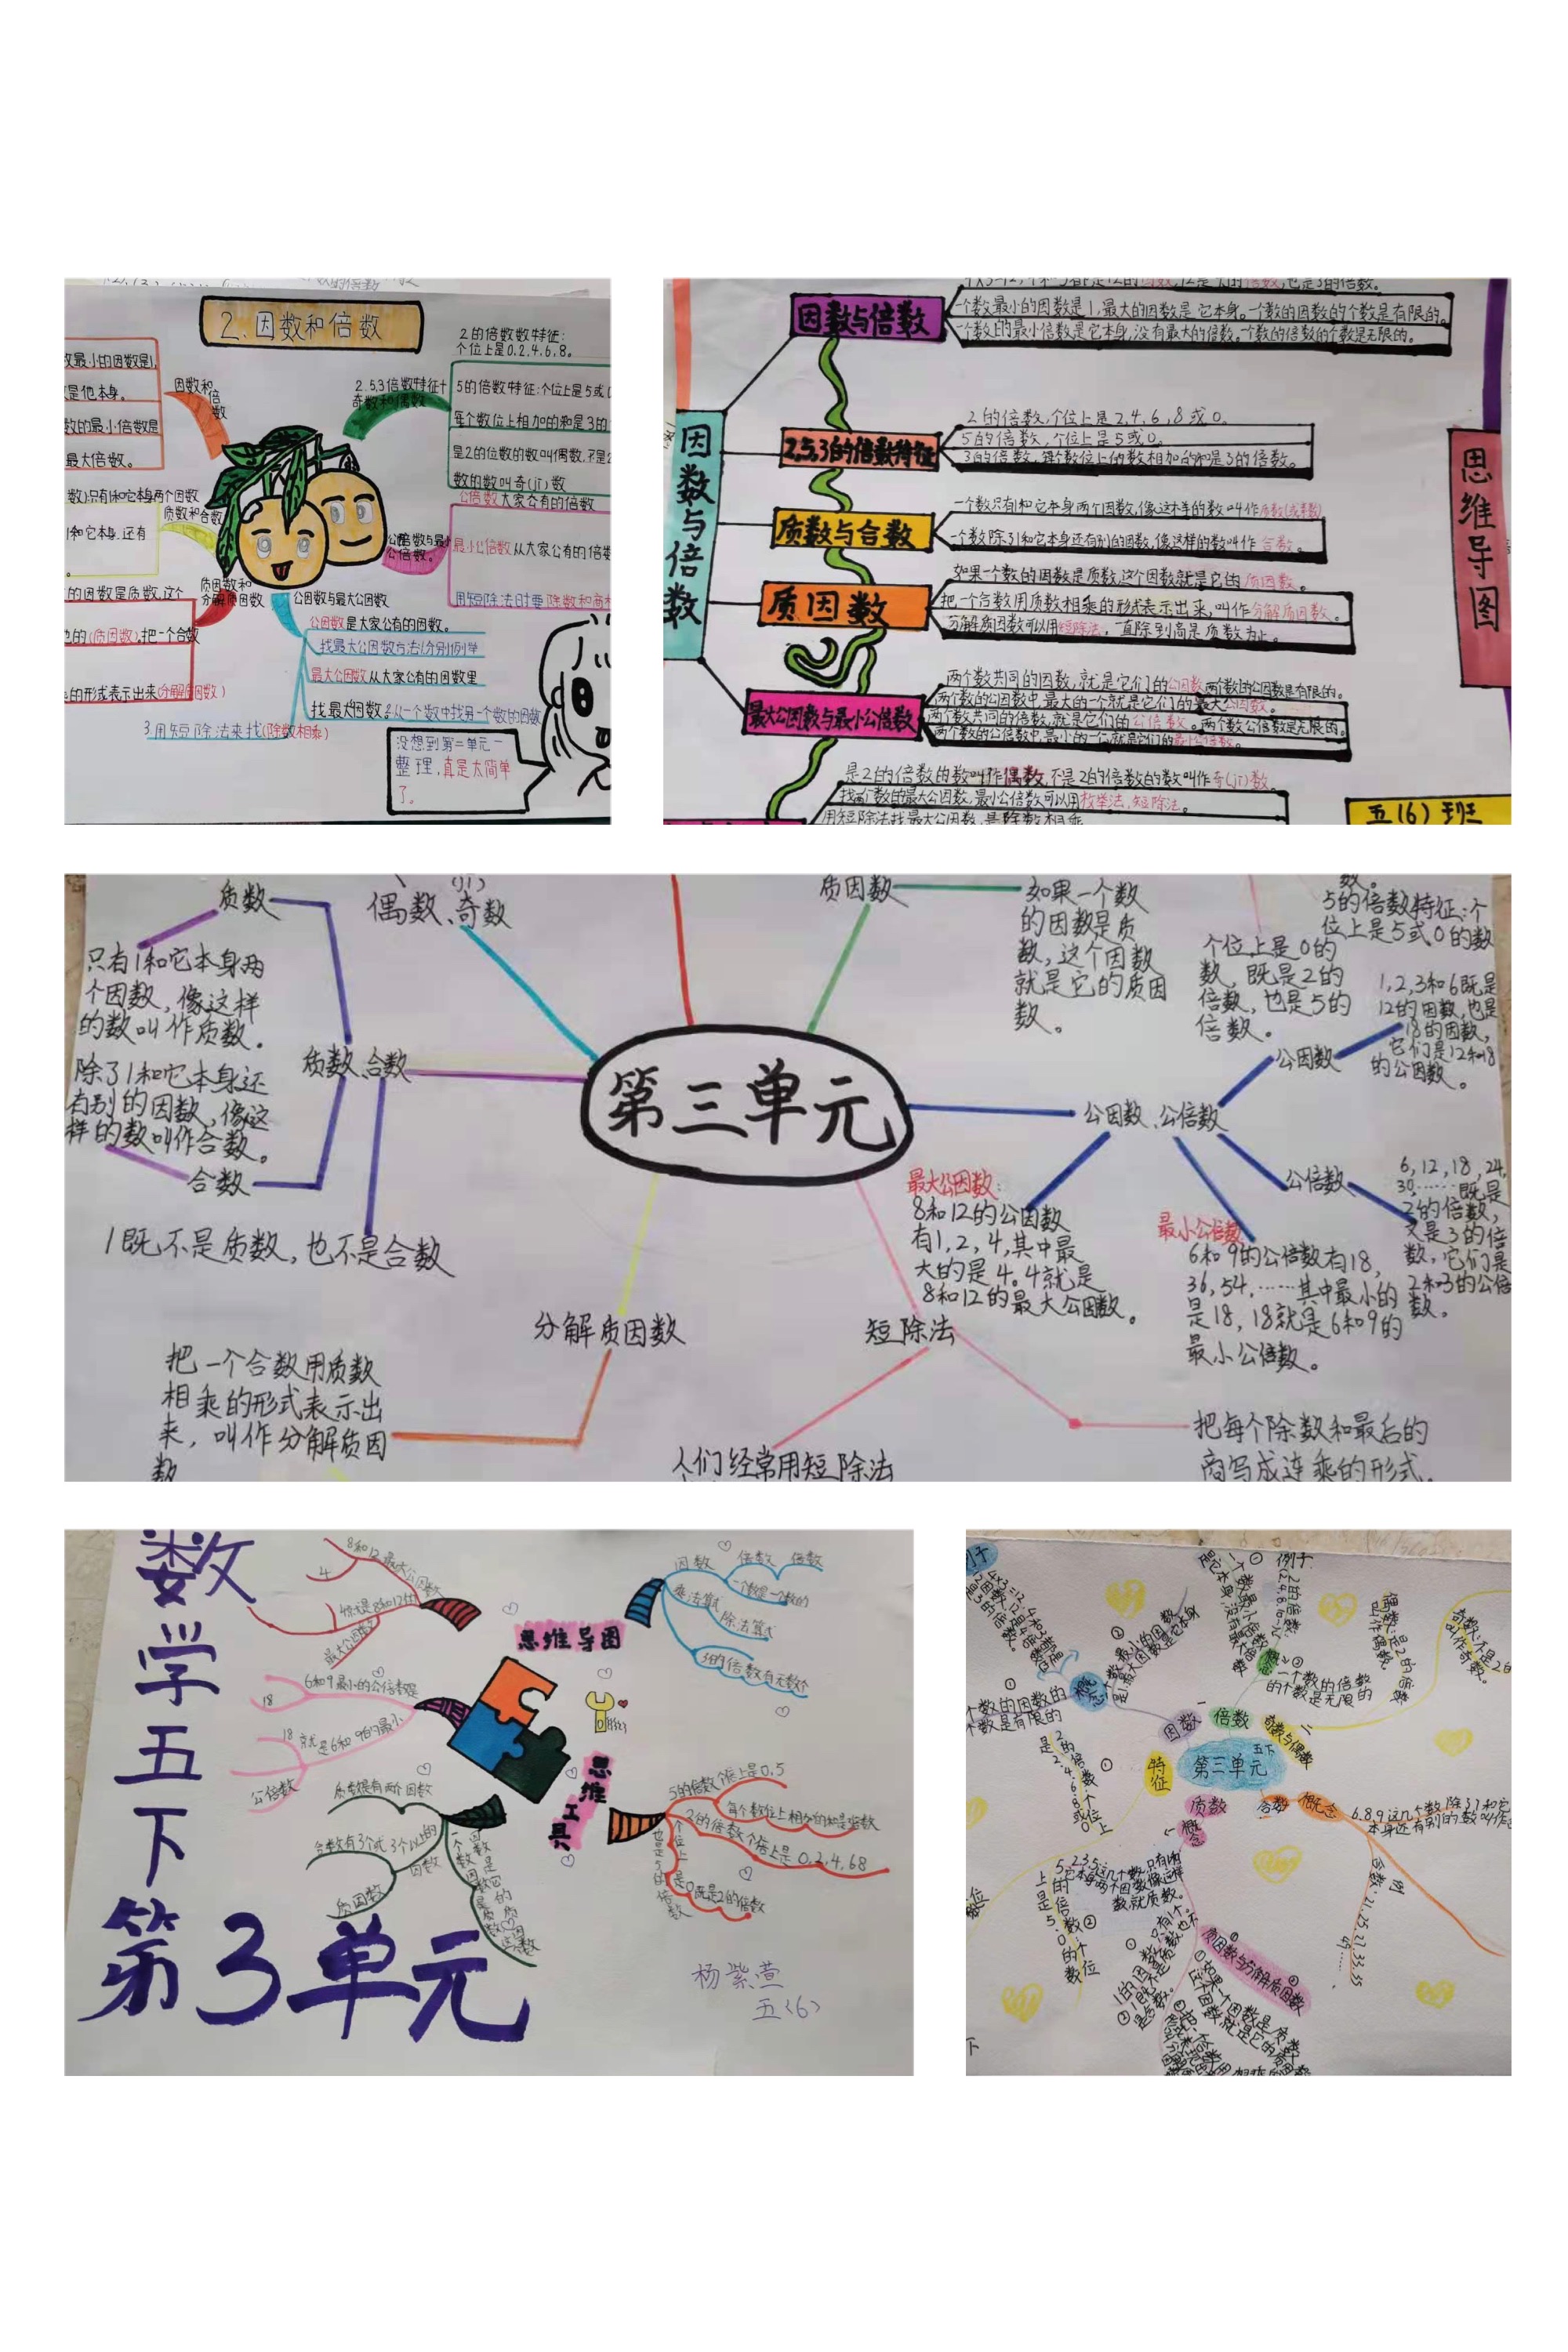 2.因数和倍数
2的倍数数特征:
个位上是0.2.4.6.8。
2.5.3倍数特征
奇数和偶数
5的倍数特征:个位上是5或
每个数位上相加的和是3的
是2的位数的数叫偶数,不是2
数的数叫奇(jī)数
因数和
倍
数
数最小的因数是1,
是他本身。
数的最小倍数是
最大倍数。
数)只有1和它本身两个因数
质数和合数
1和它本身.还有
公倍数大家公有的倍数
公倍数与最小
公倍数。
最小公倍数从大家公有的倍数
用短除法时要除数和商相
质因数和
分解质因数
的因数是质数,这个
的(质因数).把一个合数
的形式表示出来(分解质因数)
公因数与最大公因数
公因数是大家公有的因数。
找最大公因数方法1分别例举
最大公因数从大家公有的因数里
找最大因数。2从一个数中找另一个数的因数
3.用短除法来找(除数相乘)
没想到第二单元一
整理,真是太简单
了。
因数与倍数
思维导图
因数与倍数
一个数最小的因数是1,最大的因数是它本身。一个数的因数的个数是有限的。
一个数的最小倍数是它本身,没有最大的倍数。一个数的倍数的个数是无限的。
2,5,3的倍数特征
2的倍数,个位上是2,4,6,8或0。
5的倍数,个位上是5或0。
3的倍数,每个数位上的数相加的和是3的倍数。
质数与合数
一个数只有1和它本身两个因数,像这样的数叫作质数(或素数)
一个数除了1和它本身还有别的因数,像这样的数叫作合数。
质因数
如果一个数的因数是质数,这个因数就是它的质因数。
把一个合数用质数相乘的形式表示出来,叫作分解质因数。
分解质因数可以用短除法,一直除到商是质数为止。
最大公因数与最小公倍数
两个数共同的因数,就是它们的公因数,两个数的公因数是有限的。
两个数的公因数中,最大的一个就是它们的最大公因数。
两个数共同的倍数,就是它们的公倍数。两个数公倍数是无限的。
两个数的公倍数中,最小的一个就是它们的最小公倍数。
是2的倍数的数叫作偶数,不是2的倍数的数叫作奇(jī)数。
找两个数的最大公因数,最小公倍数可以用枚举法,短除法。
用短除法找最大公因数,是除数相乘
五(6)班
第三单元
质数
偶数、奇数
(jī)
只有1和它本身两
个因数,像这样
的数叫作质数。
质数、合数
除了1和它本身还
有别的因数,像这
样的数叫作合数。
合数
1既不是质数,也不是合数
质因数
如果一个数
的因数是质
数,这个因数
就是它的质因
数。
5的倍数特征:个
位上是5或0的数
个位上是0的
数,既是2的
倍数,也是5的
倍数。
公因数、公倍数
公因数
1,2,3和6既是
12的因数,也是
18的因数,
它们是12和18
的公因数。
公倍数
6,12,18,24,
30……既是
2的倍数,
又是3的倍
数,它们是
2和3的公倍
数。
最大公因数:
8和12的公因数
有1,2,4,其中最
大的是4。4就是
8和12的最大公因数。
最小公倍数
6和9的公倍数有18,
36,54,……其中最小的
是18,18就是6和9的
最小公倍数。
分解质因数
把一个合数用质数
相乘的形式表示出
来,叫作分解质因
数
短除法
人们经常用短除法
把每个除数和最后的
商写成连乘的形式。
数学五下
第3单元
思维导图
思维工具
8和12最大公因数
4
4就是8和12的
最大公因数
6和9最小的公倍数是
18
18就是6和9的最小
公倍数
质数是有两个因数
合数有3个或3个以上的
因数
质因数
因数
倍数
倍数
一个数是一个数的
乘法算式
除法算式
3的倍数有无数个
5的倍数个位上是0.5
2的倍数个位上是0,2,4,68
个位上是0既是2的倍数
也是5的倍数
杨紫萱
五(6)
第三单元
五下
因数
倍数
奇数与偶数
特征
质数
合数
概念
概念
4×3=12,
个数的因数的
个数是有限的
例子:
2的倍数
一个数的倍数
的个数是无限的
偶数:是2的倍数
叫作偶数。
奇数:不是2的
叫作奇数。
6.8.9这几个数除了1和它
本身还有别的数叫作
例
合数:21.25.27.33.35
45……
质因数与分解质因数